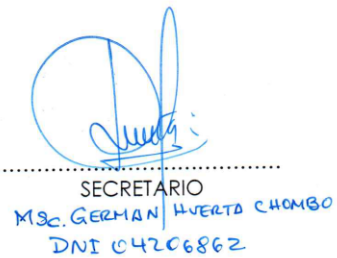 SECRETARIO
MSc. GERMAN HUERTA CHOMBO
DNI 04206862